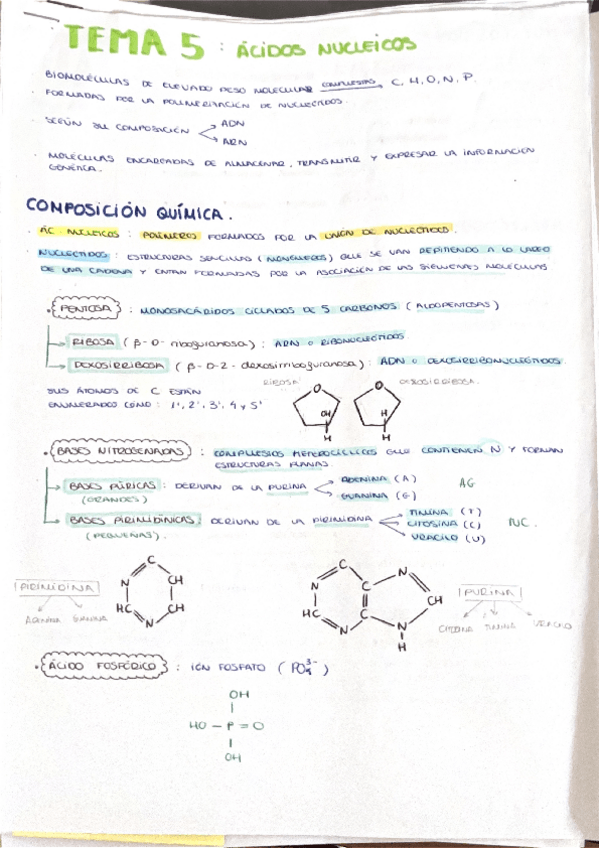 TEMA 5 : ÁCIDOS NUCLEICOS
BIOMOLÉCULAS DE ELEVADO PESO MOLECULAR COMPUESTAS C, H, O, N, P.
FORMADAS POR LA POLIMERIZACIÓN DE NUCLEÓTIDOS.
SEGÚN SU COMPOSICIÓN
ADN
ARN
MOLÉCULAS ENCARGADAS DE ALMACENAR, TRANSMITIR Y EXPRESAR LA INFORMACIÓN
GENÉTICA.
COMPOSICIÓN QUÍMICA.
ÁC NUCLEICOS : POLÍMEROS FORMADOS POR LA UNIÓN DE NUCLEÓTIDOS.
NUCLEÓTIDOS : ESTRUCTURAS SENCILLAS (MONÓMEROS) QUE SE VAN REPITIENDO A LO LARGO
DE UNA CADENA Y ESTÁN FORMADAS POR LA ASOCIACIÓN DE LAS SIGUIENTES MOLÉCULAS
PENTOSA : MONOSACÁRIDOS CICLADOS DE 5 CARBONOS (ALDOPENTOSAS)
RIBOSA (β-D-ribofuranosa) : ARN o RIBONUCLEÓTIDOS.
DEXOSIRRIBOSA (β-D-2-dexosirribofuranosa) : ADN o DEXOSIRRIBONUCLEÓTIDOS.
SUS ÁTOMOS DE C ESTÁN
ENUMERADOS COMO : 1', 2', 3', 4 y 5'
RIBOSA
DEXOSIRRIBOSA.
O
OH
H
O
H
H
BASES NITROGENADAS : COMPUESTOS HETEROCÍCLICOS QUE CONTIENEN N Y FORMAN
ESTRUCTURAS PLANAS.
BASES PÚRICAS : DERIVAN DE LA PURINA
(GRANDES)
ADENINA (A)
GUANINA (G)
AG
BASES PIRIMIDÍNICAS : DERIVAN DE LA PIRIMIDINA
(PEQUEÑAS).
TIMINA (T)
CITOSINA (C)
URACILO (U)
TUC.
PIRIMIDINA
ADENINA GUANINA
C
N
CH
HC
CH
N
C
N
C
N
CH
HC
C
N
N
H
PURINA
CITOSINA TIMINA URACILO
ÁCIDO FOSFÓRICO : IÓN FOSFATO (PO₄³⁻)
OH
HO - P = O
OH